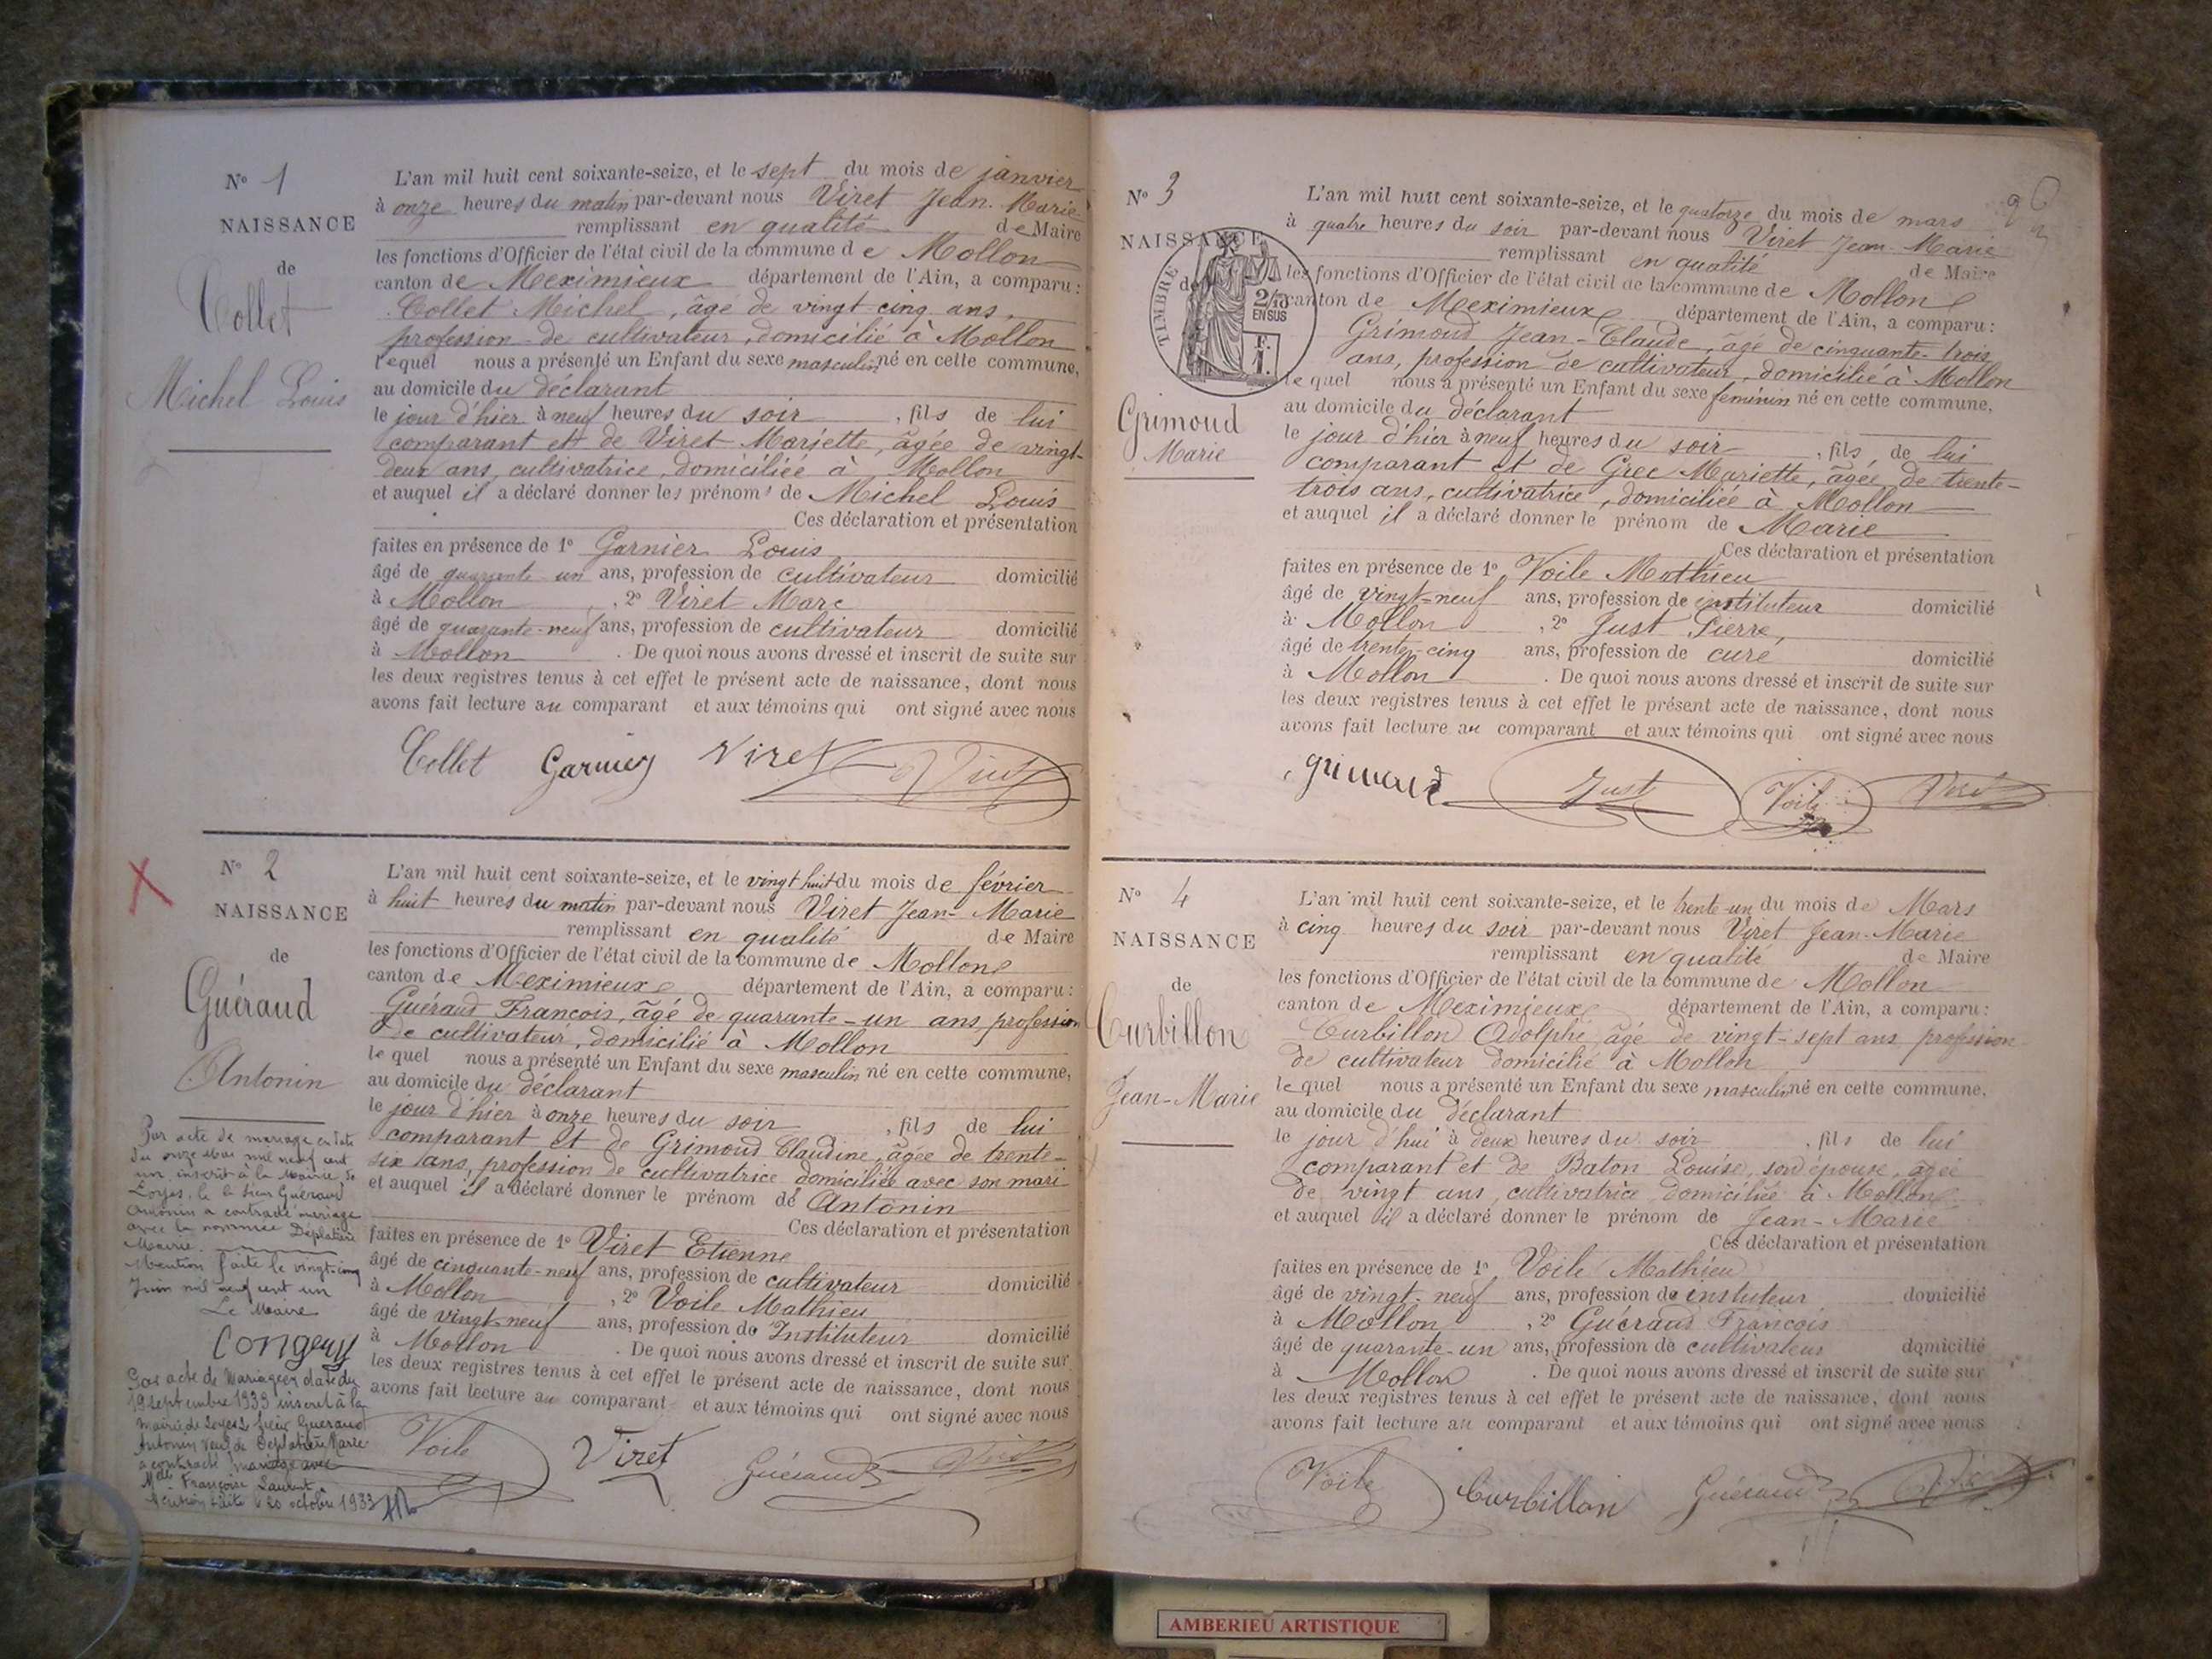 N° 1
NAISSANCE
de
Collet
Michel Louis
L'an mil huit cent soixante-seize, et le sept du mois de janvier
à onze heures du matin par-devant nous Viret Jean-Marie
remplissant en qualité de Maire
les fonctions d'Officier de l'état civil de la commune de Mollon
canton de Meximieux département de l'Ain, a comparu :
Collet Michel, âgé de vingt cinq ans,
profession de cultivateur, domicilié à Mollon
lequel nous a présenté un Enfant du sexe masculin né en cette commune,
au domicile du déclarant
le jour d'hier à neuf heures du soir, fils de lui
comparant et de Viret Mariette, âgée de vingt-
deux ans, cultivatrice, domiciliée à Mollon
et auquel il a déclaré donner les prénoms de Michel Louis
Ces déclaration et présentation
faites en présence de 1° Garnier Louis
âgé de quarante un ans, profession de cultivateur domicilié
à Mollon, 2° Viret Marc
âgé de quarante-neuf ans, profession de cultivateur domicilié
à Mollon. De quoi nous avons dressé et inscrit de suite sur
les deux registres tenus à cet effet le présent acte de naissance, dont nous
avons fait lecture au comparant et aux témoins qui ont signé avec nous
Collet Garnier Viret Viret
N° 2
NAISSANCE
de
Guéraud
Antonin
Par acte de mariage en date
du onze Mai mil neuf cent
un, inscrit à la Mairie de
Loyes, le sieur Guéraud
Antonin a contracté mariage
avec la nommée Déplatière
Marie.
Mention faite le vingt-cinq
Juin mil neuf cent un
Le Maire
Par acte de Mariage en date du
19 septembre 1933 inscrit à la
mairie de Loyes le sieur Gueraud
Antonin veuf de Déplatière Marie
a contracté mariage avec
Melle Françoise Laurent.
Mention faite le 20 octobre 1933
L'an mil huit cent soixante-seize, et le vingt huit du mois de février
à huit heures du matin par-devant nous Viret Jean-Marie
remplissant en qualité de Maire
les fonctions d'Officier de l'état civil de la commune de Mollon
canton de Meximieux département de l'Ain, a comparu :
Guéraud François, âgé de quarante-un ans profession
de cultivateur, domicilié à Mollon
lequel nous a présenté un Enfant du sexe masculin né en cette commune,
au domicile du déclarant
le jour d'hier à onze heures du soir, fils de lui
comparant et de Grimoud Claudine, âgée de trente-
six ans, profession de cultivatrice domiciliée avec son mari
et auquel il a déclaré donner le prénom de Antonin
Ces déclaration et présentation
faites en présence de 1° Viret Etienne
âgé de cinquante-neuf ans, profession de cultivateur domicilié
à Mollon, 2° Voile Mathieu
âgé de vingt-neuf ans, profession de Instituteur domicilié
à Mollon. De quoi nous avons dressé et inscrit de suite sur
les deux registres tenus à cet effet le présent acte de naissance, dont nous
avons fait lecture au comparant et aux témoins qui ont signé avec nous
Voile Viret Guéraud Viret
N° 3
NAISSANCE
de
TIMBRE
2/10
EN SUS
F.
1.
Grimoud
Marie
L'an mil huit cent soixante-seize, et le quatorze du mois de mars
à quatre heures du soir par-devant nous Viret Jean-Marie
remplissant en qualité de Maire
les fonctions d'Officier de l'état civil de la commune de Mollon
canton de Meximieux département de l'Ain, a comparu :
Grimoud Jean-Claude, âgé de cinquante-trois
ans, profession de cultivateur, domicilié à Mollon
lequel nous a présenté un Enfant du sexe feminin né en cette commune,
au domicile du déclarant
le jour d'hier à neuf heures du soir, fils de lui
comparant et de Grec Mariette, âgée de trente-
trois ans, cultivatrice, domiciliée à Mollon
et auquel il a déclaré donner le prénom de Marie
Ces déclaration et présentation
faites en présence de 1° Voile Mathieu
âgé de vingt-neuf ans, profession de instituteur domicilié
à Mollon, 2° Just Pierre,
âgé de trente-cinq ans, profession de curé domicilié
à Mollon. De quoi nous avons dressé et inscrit de suite sur
les deux registres tenus à cet effet le présent acte de naissance, dont nous
avons fait lecture au comparant et aux témoins qui ont signé avec nous
grimoud Just Voile Viret
N° 4
NAISSANCE
de
Curbillon
Jean-Marie
L'an mil huit cent soixante-seize, et le trente-un du mois de Mars
à cinq heures du soir par-devant nous Viret Jean-Marie
remplissant en qualité de Maire
les fonctions d'Officier de l'état civil de la commune de Mollon
canton de Meximieux département de l'Ain, a comparu :
Curbillon Adolphe âgé de vingt-sept ans profession
de cultivateur domicilié à Mollon
lequel nous a présenté un Enfant du sexe masculin né en cette commune,
au domicile du déclarant
le jour d'hui à deux heures du soir, fils de lui
comparant et de Baton Louise, son épouse, agée
de vingt ans, cultivatrice domiciliée à Mollon
et auquel il a déclaré donner le prénom de Jean-Marie
Ces déclaration et présentation
faites en présence de 1° Voile Mathieu
âgé de vingt-neuf ans, profession de instuteur domicilié
à Mollon, 2° Guéraud François
âgé de quarante-un ans, profession de cultivateur domicilié
à Mollon. De quoi nous avons dressé et inscrit de suite sur
les deux registres tenus à cet effet le présent acte de naissance, dont nous
avons fait lecture au comparant et aux témoins qui ont signé avec nous
Voile Curbillon Guéraud Viret
AMBERIEU ARTISTIQUE